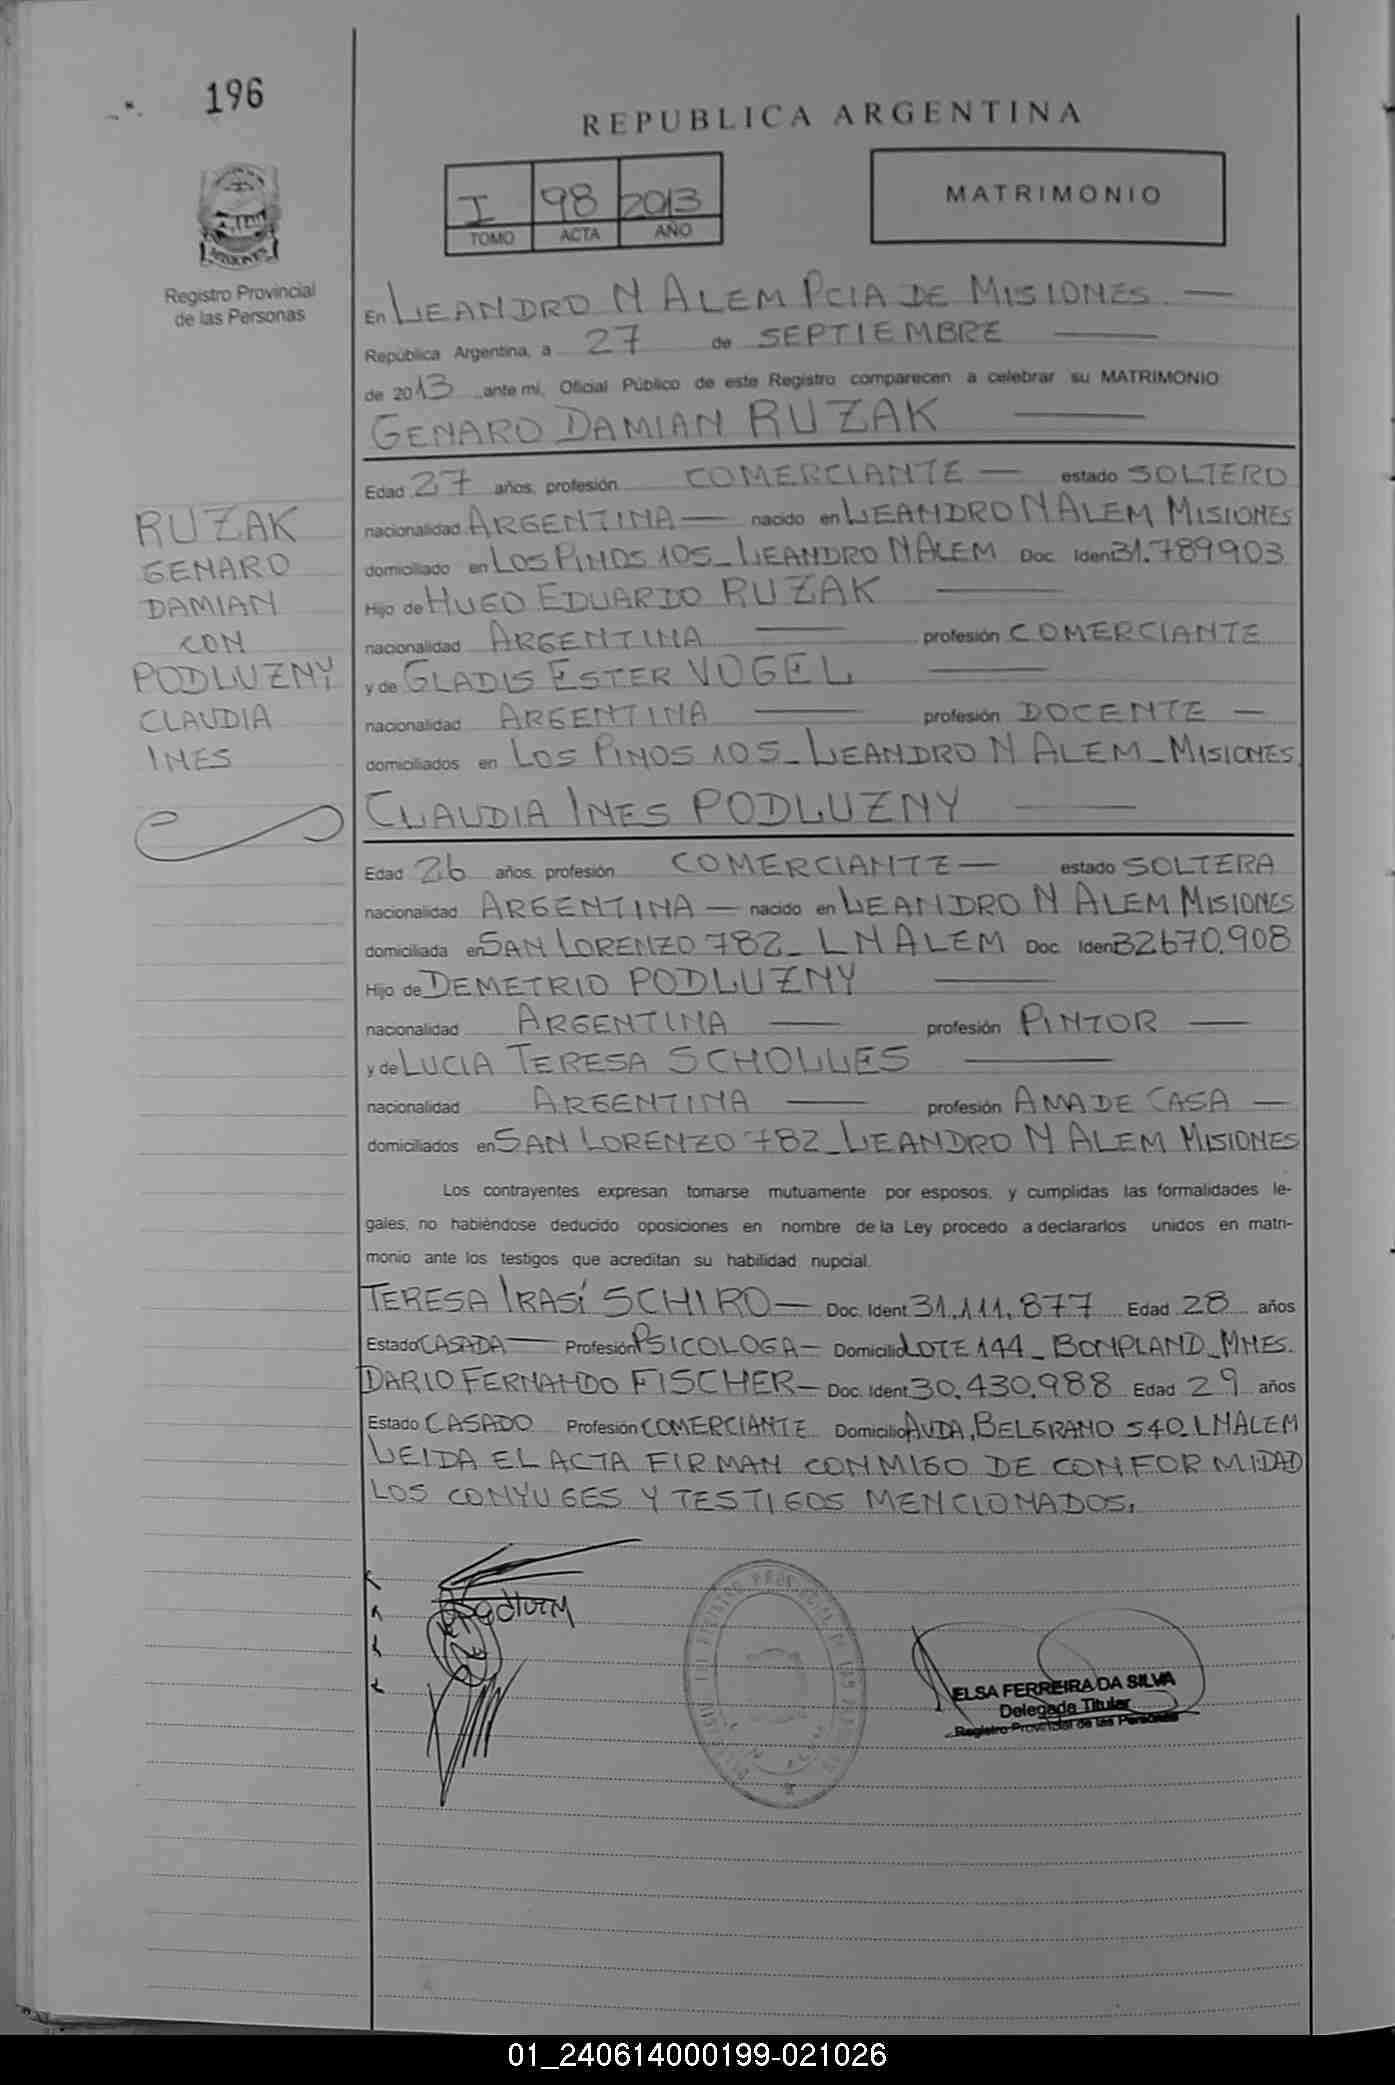 196
REPUBLICA ARGENTINA
I 98 2013
TOMO ACTA AÑO
MATRIMONIO
MISIONES
Registro Provincial
de las Personas
En LEANDRO N ALEM PCIA DE MISIONES. —
República Argentina, a 27 de SEPTIEMBRE —
de 2013 ante mi, Oficial Público de este Registro comparecen a celebrar su MATRIMONIO:
GENARO DAMIAN RUZAK —
Edad 27 años, profesión COMERCIANTE — estado SOLTERO
nacionalidad ARGENTINA — nacido en LEANDRO N ALEM MISIONES
domiciliado en LOS PINOS 105_ LEANDRO N ALEM Doc. Iden 31.789903
Hijo de HUGO EDUARDO RUZAK —
nacionalidad ARGENTINA — profesión COMERCIANTE
y de GLADIS ESTER VOGEL —
nacionalidad ARGENTINA — profesión DOCENTE —
domiciliados en LOS PINOS 105_ LEANDRO N ALEM_ MISIONES
RUZAK
GENARO
DAMIAN
CON
PODLUZNY
CLAUDIA
INES
CLAUDIA INES PODLUZNY —
Edad 26 años, profesión COMERCIANTE — estado SOLTERA
nacionalidad ARGENTINA — nacido en LEANDRO N ALEM MISIONES
domiciliada en SAN LORENZO 782_ L N ALEM Doc. Iden 32670.908
Hijo de DEMETRIO PODLUZNY —
nacionalidad ARGENTINA — profesión PINTOR —
y de LUCIA TERESA SCHOLLES —
nacionalidad ARGENTINA — profesión AMA DE CASA —
domiciliados en SAN LORENZO 782_ LEANDRO N ALEM MISIONES
Los contrayentes expresan tomarse mutuamente por esposos, y cumplidas las formalidades le-
gales, no habiéndose deducido oposiciones en nombre de la Ley procedo a declararlos unidos en matri-
monio ante los testigos que acreditan su habilidad nupcial.
TERESA IRASÍ SCHIRO — Doc. Ident 31.111.877 Edad 28 años
Estado CASADA — Profesión PSICOLOGA — Domicilio LOTE 144_ BONPLAND_ MNES.
DARIO FERNANDO FISCHER — Doc. Ident 30.430.988 Edad 29 años
Estado CASADO Profesión COMERCIANTE Domicilio AVDA, BELGRANO 540_ L N ALEM
LEIDA EL ACTA FIRMAN CONMIGO DE CONFORMIDAD
LOS CONYUGES Y TESTIGOS MENCIONADOS.
ELSA FERREIRA DA SILVA
Delegada Titular
Registro Provincial de las Personas
01_240614000199-021026